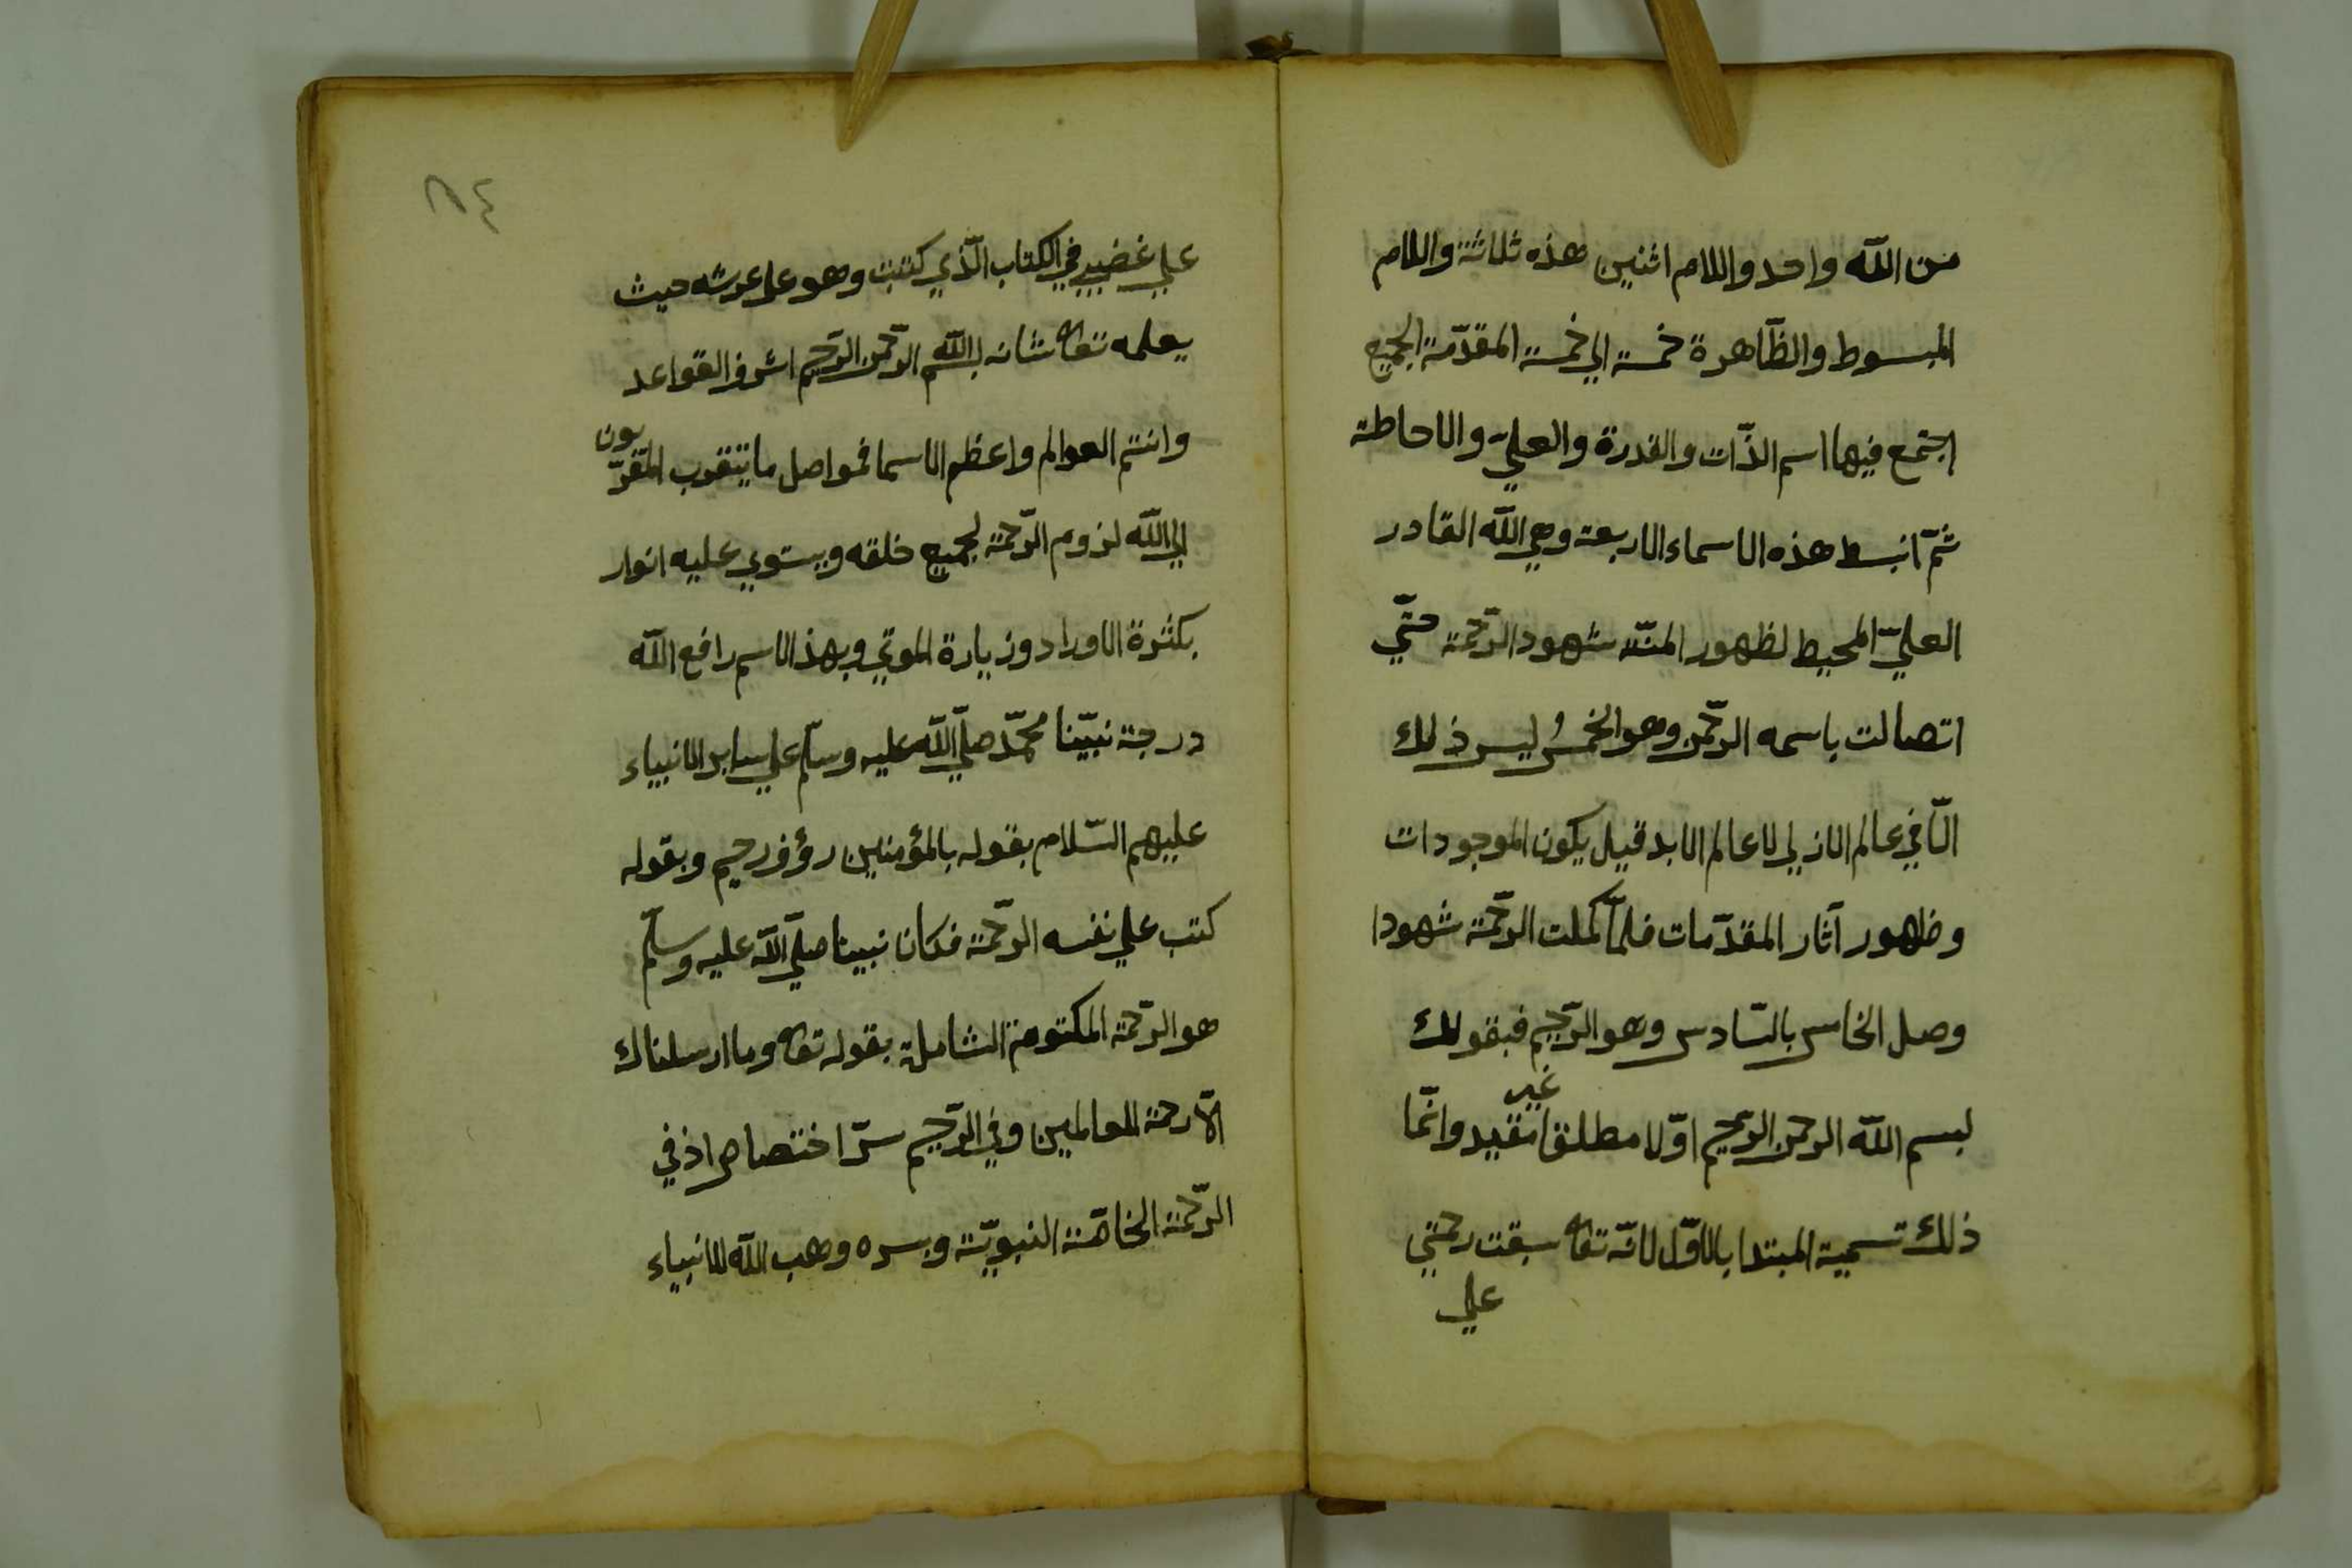 من اللّه واحد واللام اثنين هذه ثلاثة واللام
المبسوط والظّاهرة خمسة الي خمسة المقدّمة الجميع
اجتمع فيها اسم الذّات والقدرة والعليّ والاحاطة
ثمّ انبسط هذه الاسماء الاربعة وهي اللّه القادر
العليّ المحيط لظهور المنّة شهود الرّحمة حتّي
اتصالت باسمه الرّحمن وهو الخمسُ ليس ذلك
الّا في عالم الازلي لا عالم الابد قبل يكون الموجودات
وظهور آثار المقدّمات فلمّا كملت الرّحمة شهودا
وصل الخامس بالسّادس وهو الرّحيم فبقولك
بسم اللّه الرحمن الرّحيم اوّلا مطلقا غير مقيد وانّما
ذلك تسمية المبتدا بالاوّل لانّه تعالى سبقت رحمتي
علي
٨٤
علي غضبي في الكتاب الّذي كتبت وهو على عرشه حيث
يعلمه تعالى شانه بسم اللّه الرّحمن الرّحيم اشرف القواعد
وانتم العوالم واعظم الاسما فمواصل ما يتقرب المقرّبون
الي اللّه لزوم الرّحمة لجميع خلقه ويستوي عليه انوار
بكثرة الاوراد وزيارة الموتي وبهذا الاسم رافع اللّه
درجة نبيّنا محمّد صلّي اللّه عليه وسلّم علي ساير الانبياء
عليهم السّلام بقوله بالمؤمنين رؤف رحيم وبقوله
كتب علي نفسه الرّحمة فكان نبينا صلّي اللّه عليه وسلّم
هو الرّحمة المكتومة الشاملة بقوله تعالى وما ارسلناك
الّا رحمة للعالمين وفي الرّحيم سرّ اختصاص اذ في
الرّحمة الخاصّة النبويّة وبسره وهب اللّه الانبياء